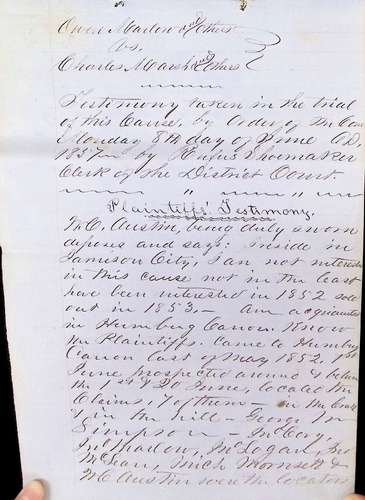 Owen Marlow and Others
vs.
Charles Marsh and Others
Testimony taken in the trial
of this Cause, by Order of the Cour
Monday 8th day of June A.D.
1857 by Rufus Shoemaker
Clerk of the District Court.
Plaintiffs' Testimony.
Austin, being duly sworn
deposes and says: I reside in
City, I am not interes
in this cause not in the least
have been interested in 1852 sold
out in 1853. — Am acquainte
in Humbug Canon. Know
the Plaintiffs. Came to Humbug
Canon last of May 1852. 1st
June prospected around & below
the 1st & 20 June, located the
Claims, 7 of them — in the
& in the hill — George
Simpson — Jno Cory,
Jno Thadow, Logan, Jno
McLean, Mich &
Austin were the locators